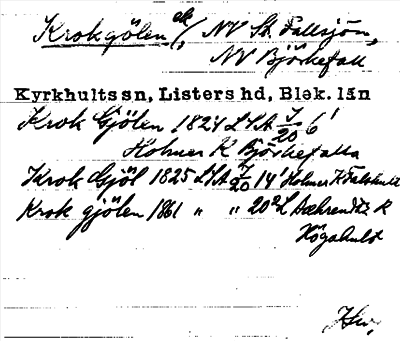 Krokgölen ek/, NV St. Fallsjön,
NV Björkefall
Kyrkhults sn, Listers hd, Blek. län
Krok Gjölen 1824 LSA J/20 6¹
Holmer K Björkefalla
Krok Gjöl 1825 LSA J/20 14¹ Holmer K
Krok gjölen 1861 " " 20² L K
Högahult